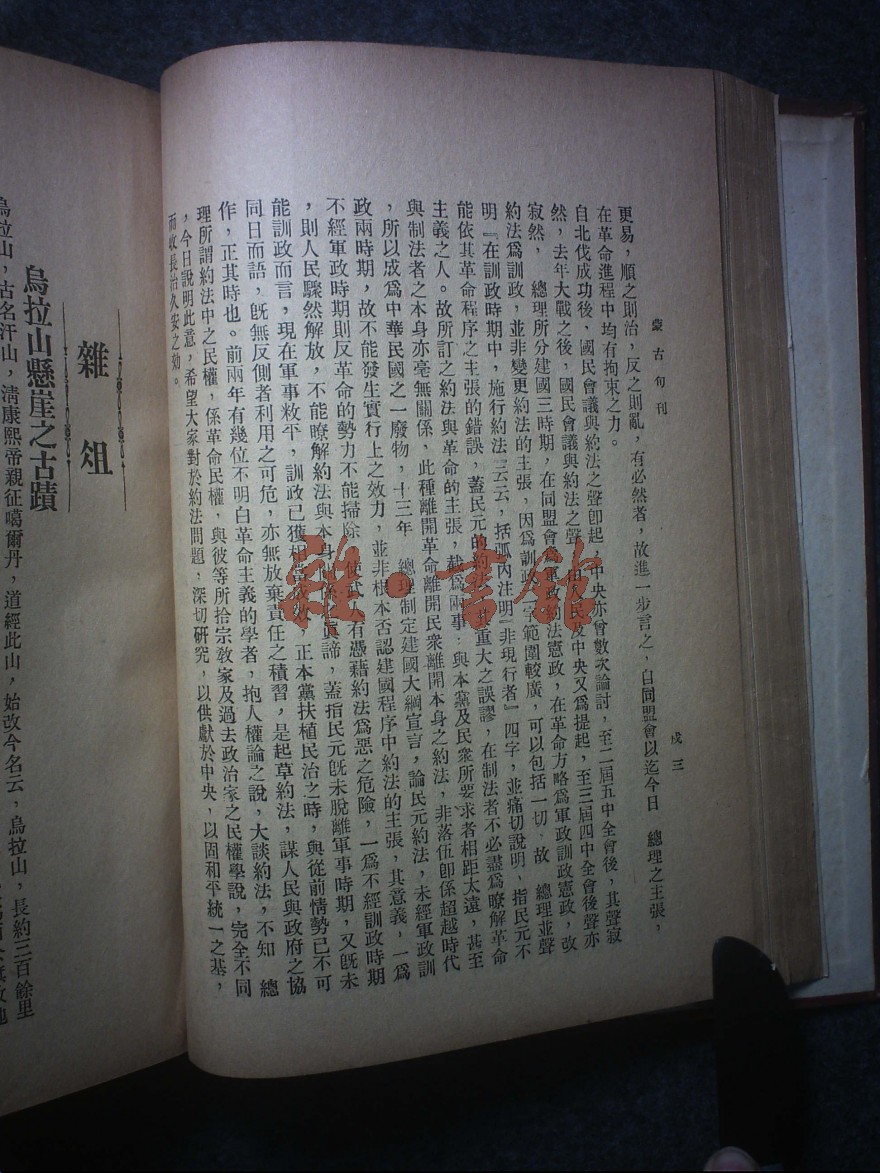 蒙古旬刊
戊三
更易，順之則治，反之則亂，有必然者，故進一步言之，自同盟會以迄今日　總理之主張，
在革命進程中均有拘束之力。
自北伐成功後，國民會議與約法之聲卽起，中央亦曾數次論討，至二屆五中全會後，其聲寂
然，去年大戰之後，國民會議與約法之聲，由人民及中央又爲提起，至三屆四中全會後聲亦
寂然，　總理所分建國三時期，在同盟會爲軍政約法憲政，在革命方略爲軍政訓政憲政，改
約法爲訓政，並非變更約法的主張，因爲訓政二字範圍較廣，可以包括一切，故　總理並聲
明『在訓政時期中，施行約法』云云，括弧內注明『非現行者』四字，並痛切說明，指民元不
能依其革命程序之主張的錯誤，蓋民元的約法，其重大之誤謬，在制法者不必盡爲瞭解革命
主義之人。故所訂之約法與革命的主張，截爲兩事，與本黨及民衆所要求者相距太遠，甚至
與制法者之本身亦毫無關係，此種離開革命離開民衆離開本身之約法，非落伍卽係超越時代
，所以成爲中華民國之一廢物，十三年　總理制定建國大綱宣言，論民元約法，未經軍政訓
政兩時期，故不能發生實行上之效力，並非根本否認建國程序中約法的主張，其意義，一爲
不經軍政時期則反革命的勢力不能掃除，使武人有憑藉約法爲惡之危險，一爲不經訓政時期
，則人民驟然解放，不能瞭解約法與本身關係之眞諦，蓋指民元旣未脫離軍事時期，又旣未
能訓政而言，現在軍事敉平，訓政已獲相當成效，正本黨扶植民治之時，與從前情勢已不可
同日而語，旣無反側者利用之可危，亦無放棄責任之積習，是起草約法，謀人民與政府之協
作，正其時也。前兩年有幾位不明白革命主義的學者，抱人權論之說，大談約法，不知　總
理所謂約法中之民權，係革命民權，與彼等所拾宗敎家及過去政治家之民權學說，完全不同
，今日說明此意，希望大家對於約法問題，深切硏究，以供獻於中央，以固和平統一之基，
而收長治久安之効。
雜俎
烏拉山懸崖之古蹟
烏拉山，古名汗山，淸康熙帝親征噶爾丹，道經此山，始改今名云，烏拉山，長約三百餘里
雜·書館